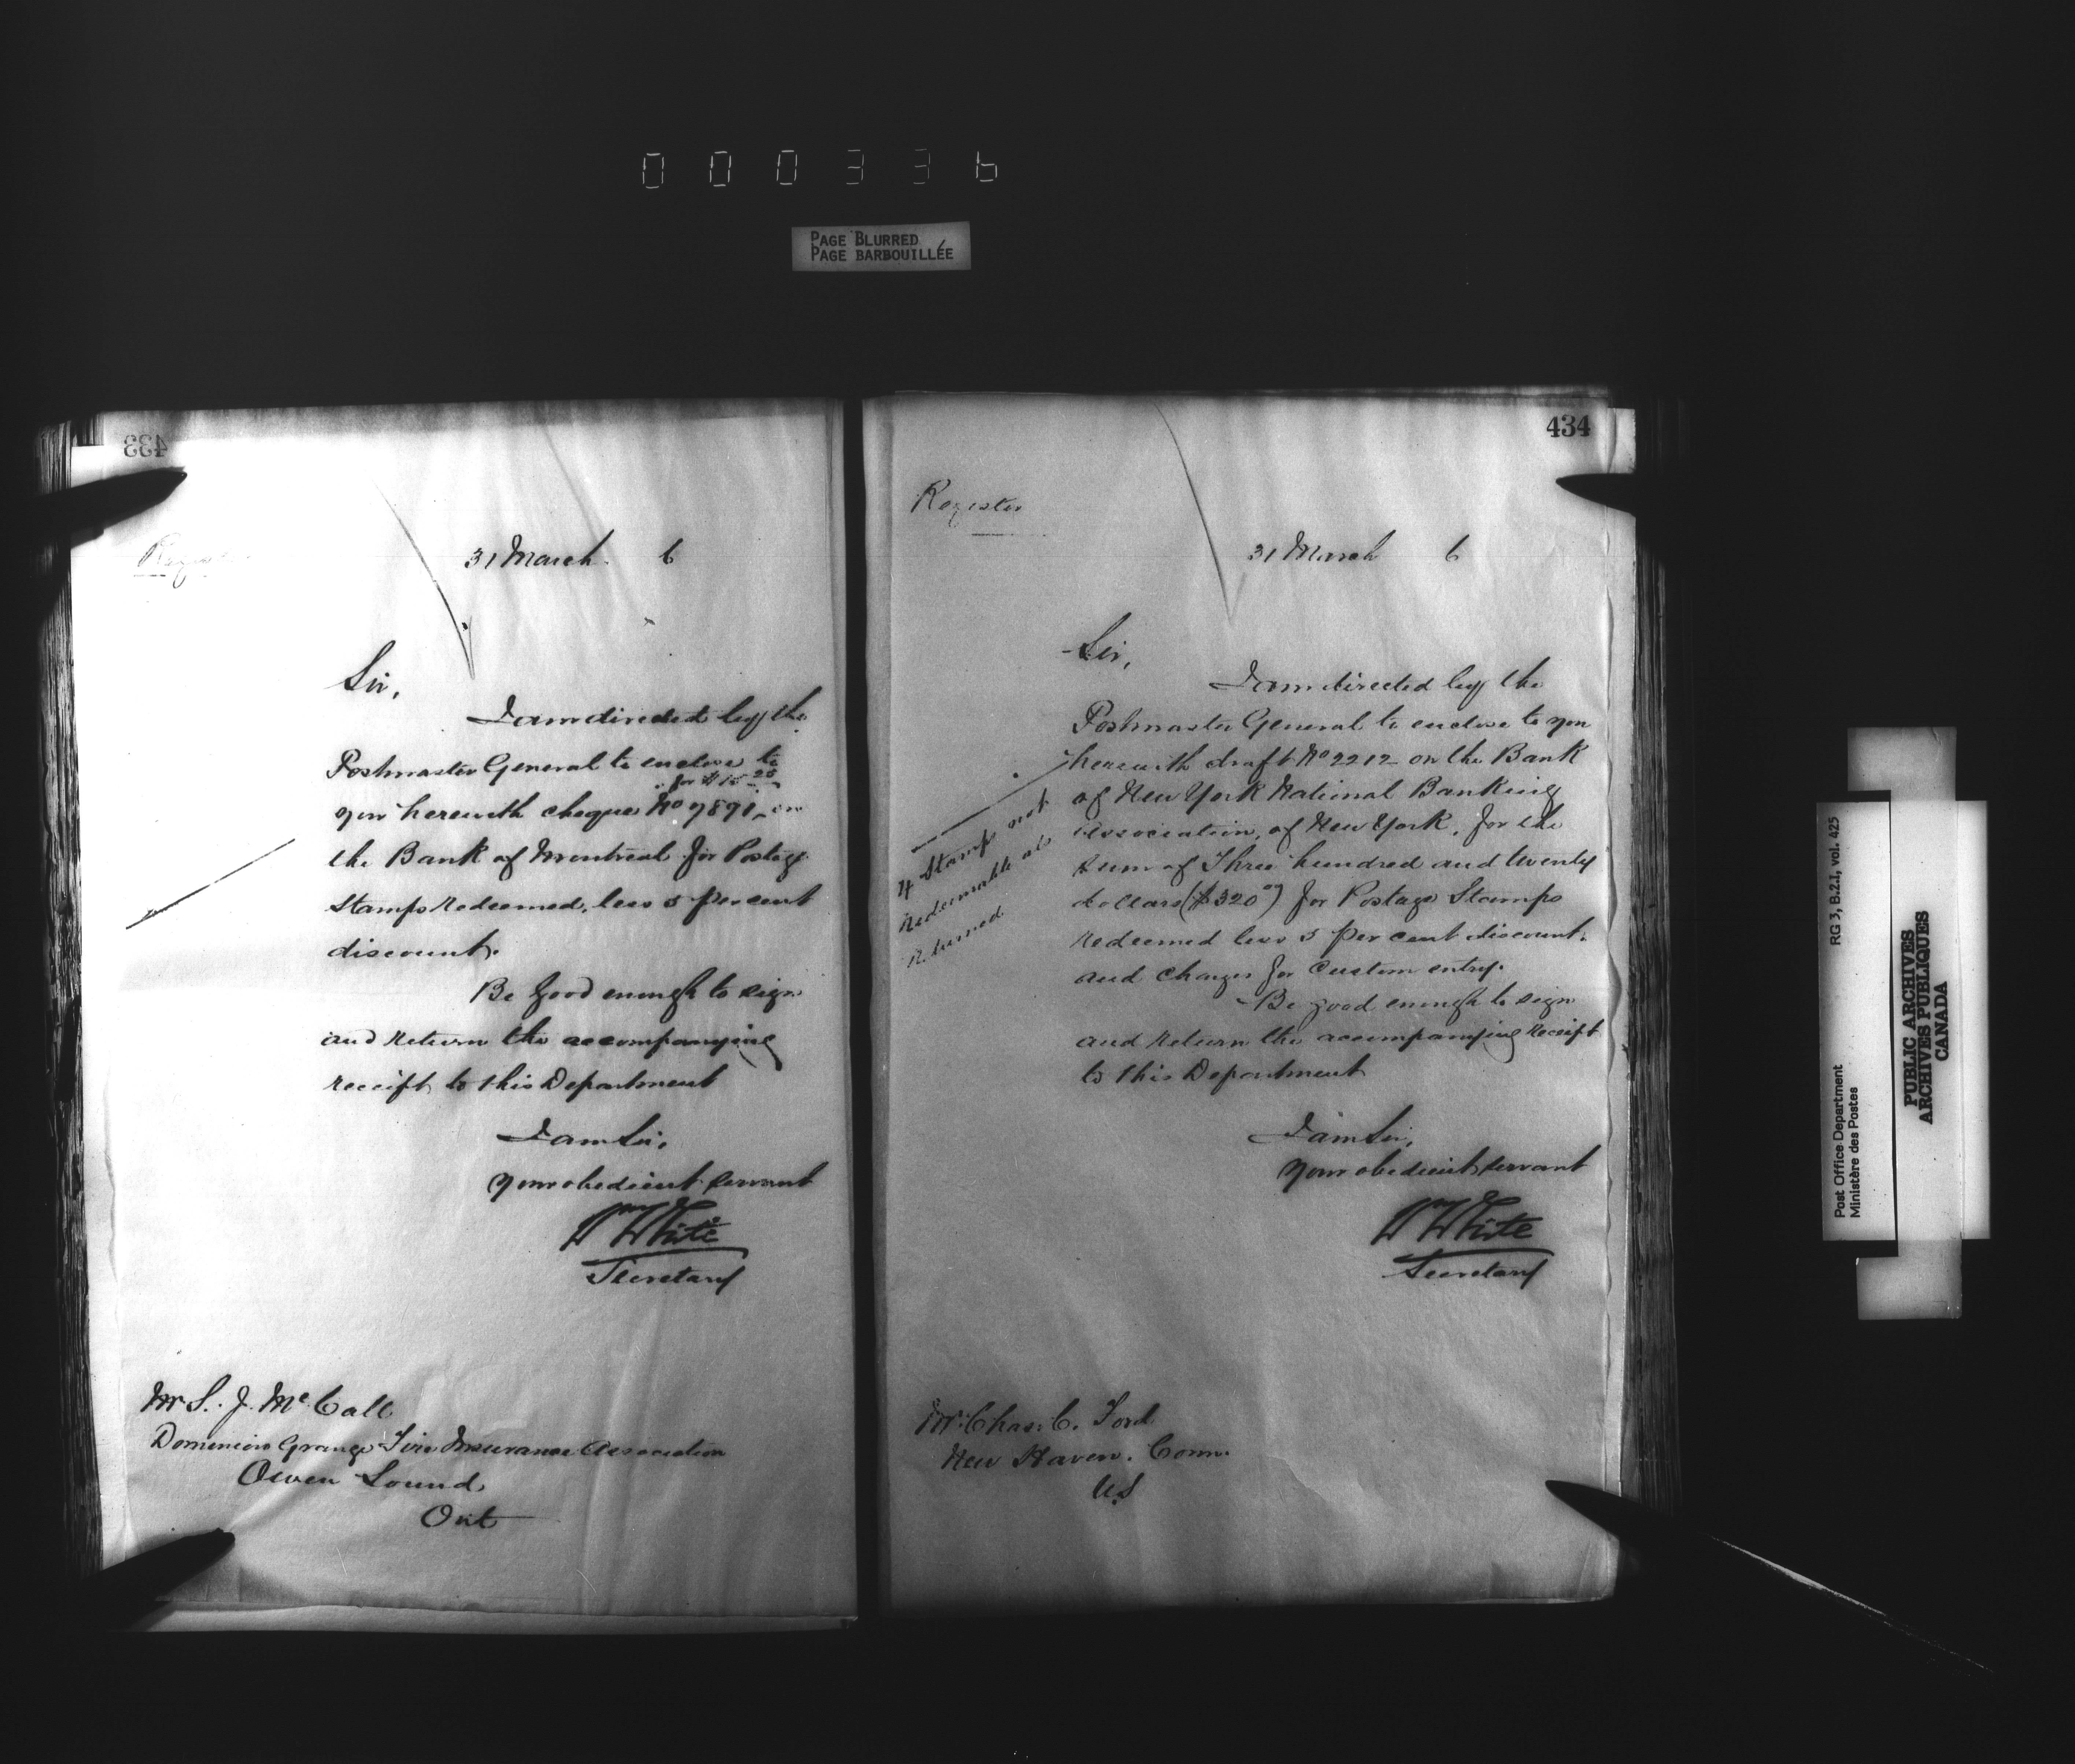 000336
PAGE BLURRED
PAGE BARBOUILLÉE
433
Register
31 March 6
Sir,
I am directed by the
Postmaster General to enclose to
for $15 25
you herewith cheque No 9891 on
the Bank of Montreal for Postage
Stamps redeemed, less 5 per cent
discount.
Be good enough to sign
and return the accompanying
receipt to this Department
I am Sir,
Your obedient servant
Wm White
Secretary
Mr S. J. McCall
Dominion Grange Fire Insurance Association
Owen Sound
Ont
434
Register
31 March 6
Sir,
I am directed by the
Postmaster General to enclose to you
herewith draft No 2212 on the Bank
of New York National Banking
Association, of New York, for the
sum of Three hundred and twenty
dollars ($320 00) for Postage Stamps
redeemed less 5 per cent discount.
and charges for Custom entry.
Be good enough to sign
and return the accompanying receipt
to this Department
4 Stamps not
redeemable are
returned
I am Sir,
Your obedient servant
Wm White
Secretary
Mr Chas. C. Ford
New Haven. Conn.
U.S
RG 3, B.2.1, vol. 425
Post Office Department
Ministère des Postes
PUBLIC ARCHIVES
ARCHIVES PUBLIQUES
CANADA